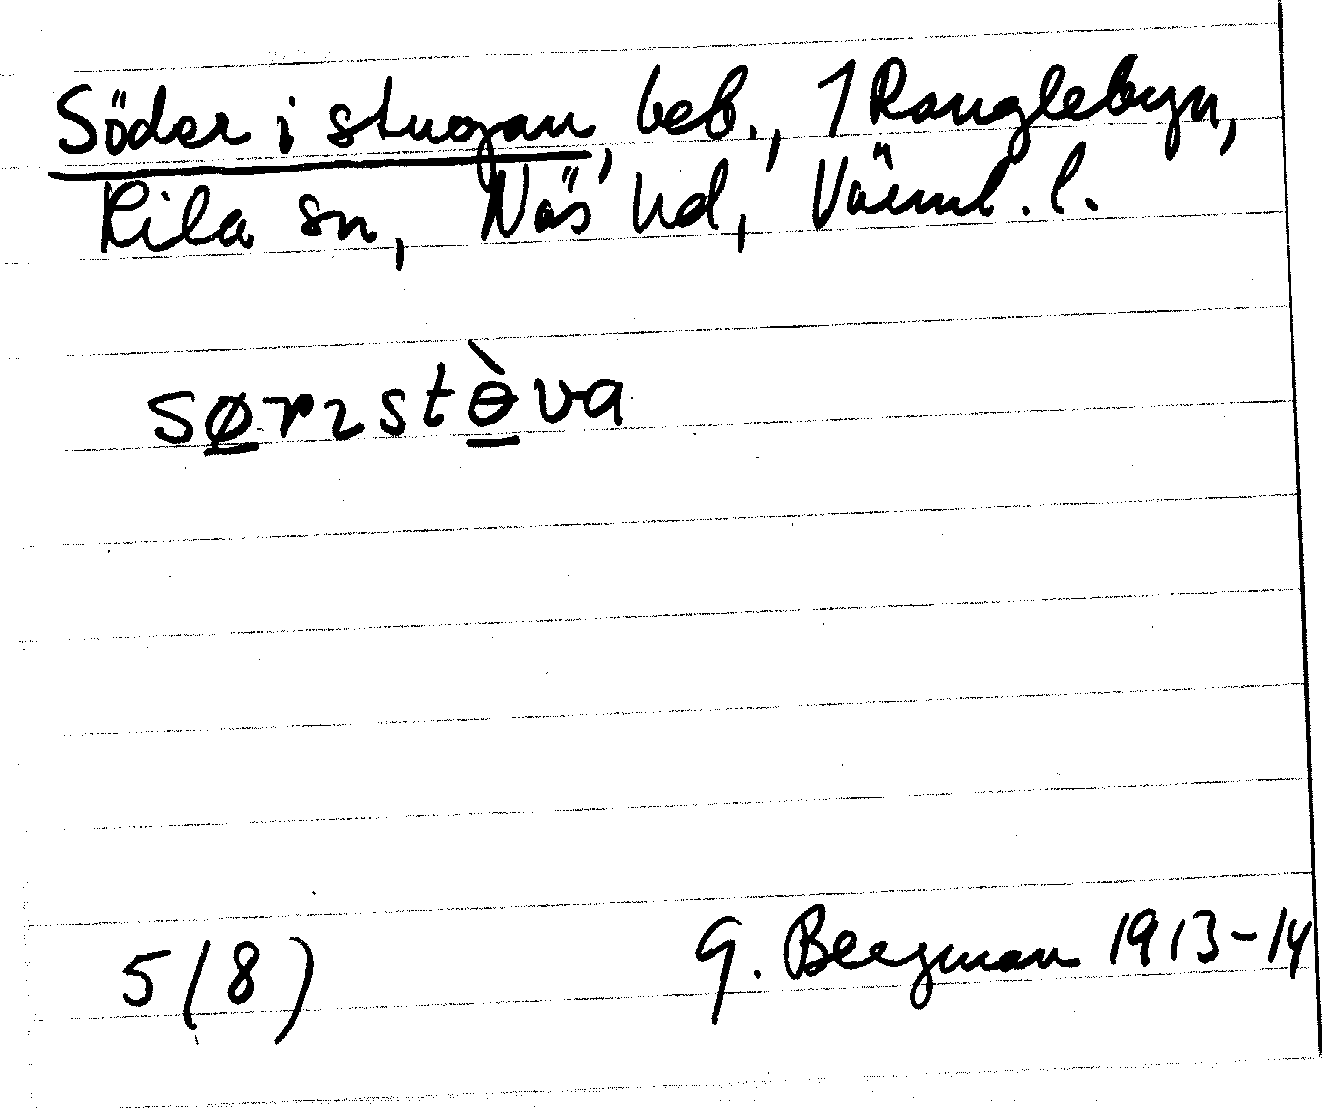 Söder i stugan, beb., 1 Ranglebyn,
Kila sn, Näs hd, Värml. l.
sørɿstɵ̀va
5 (8) G. Bergman 1913-14